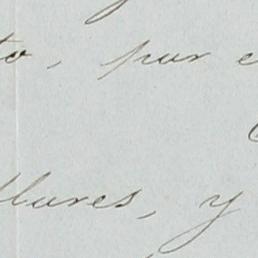 to, pur e
llares, y